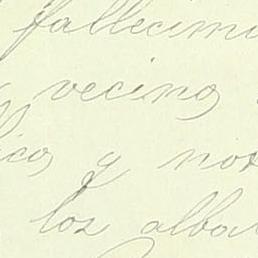 fallecimi
vecino
ico, y no
los alba